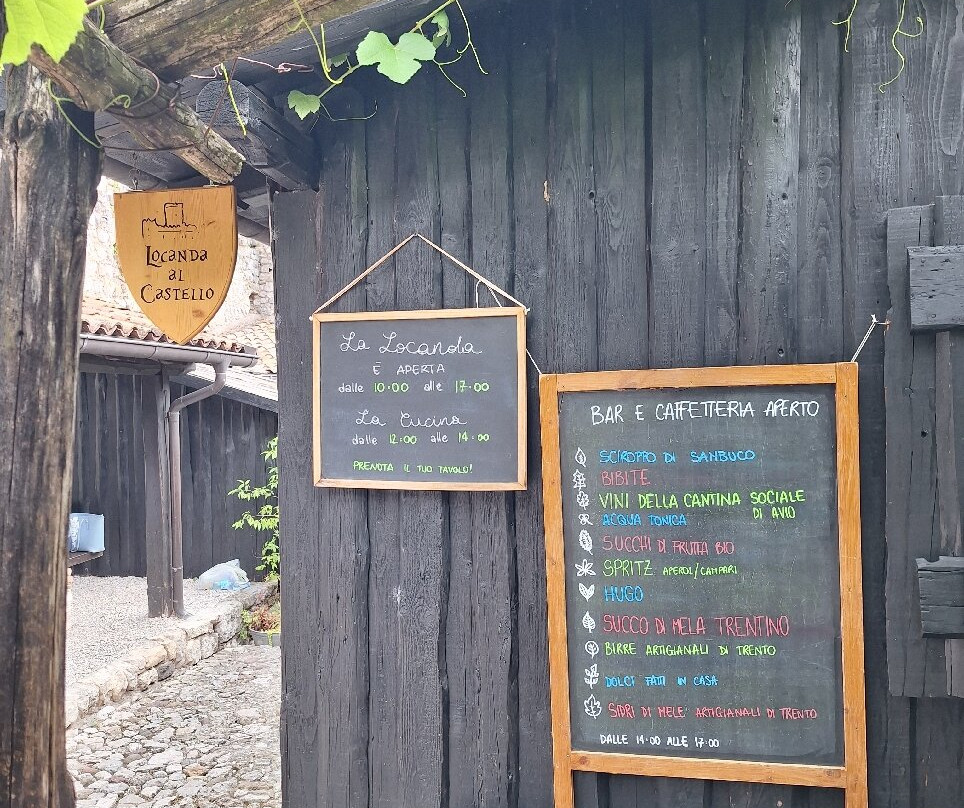 Locanda
al
Castello
La Locanda
È APERTA
dalle 10:00 alle 17:00
La Cucina
dalle 12:00 alle 14:00
PRENOTA IL TUO TAVOLO!
BAR E CAFFETTERIA APERTO
SCIROPPO DI SANBUCO
BIBITE
VINI DELLA CANTINA SOCIALE
DI AVIO
ACQUA TONICA
SUCCHI DI FRUTTA BIO
SPRITZ APEROL/CAMPARI
HUGO
SUCCO DI MELA TRENTINO
BIRRE ARTIGIANALI DI TRENTO
DOLCI FATTI IN CASA
SIDRI DI MELE ARTIGIANALI DI TRENTO
DALLE 14:00 ALLE 17:00